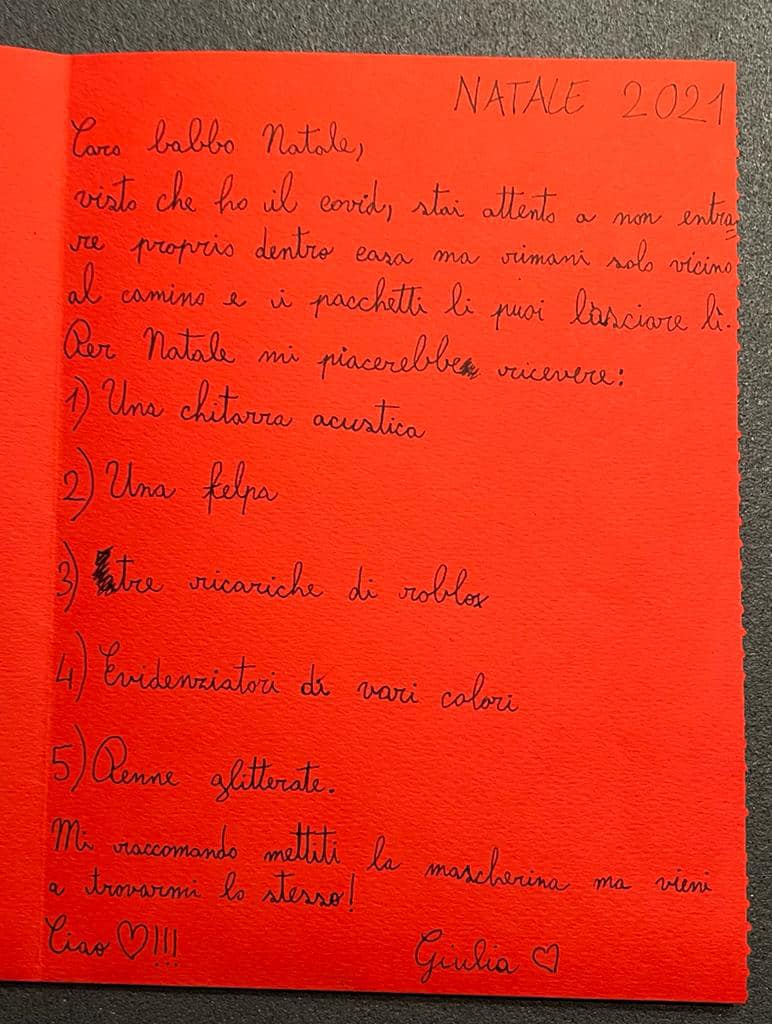 NATALE 2021
Caro babbo Natale,
visto che ho il covid, stai attento a non entra-
re proprio dentro casa ma rimani solo vicino
al camino e i pacchetti li puoi lasciare lì.
Per Natale mi piacerebbe ricevere:
1) Una chitarra acustica
2) Una felpa
3) tre ricariche di roblox
4) Evidenziatori di vari colori
5) Penne glitterate.
Mi raccomando mettiti la mascherina ma vieni
a trovarmi lo stesso!
Ciao ♡!!!
Giulia ♡